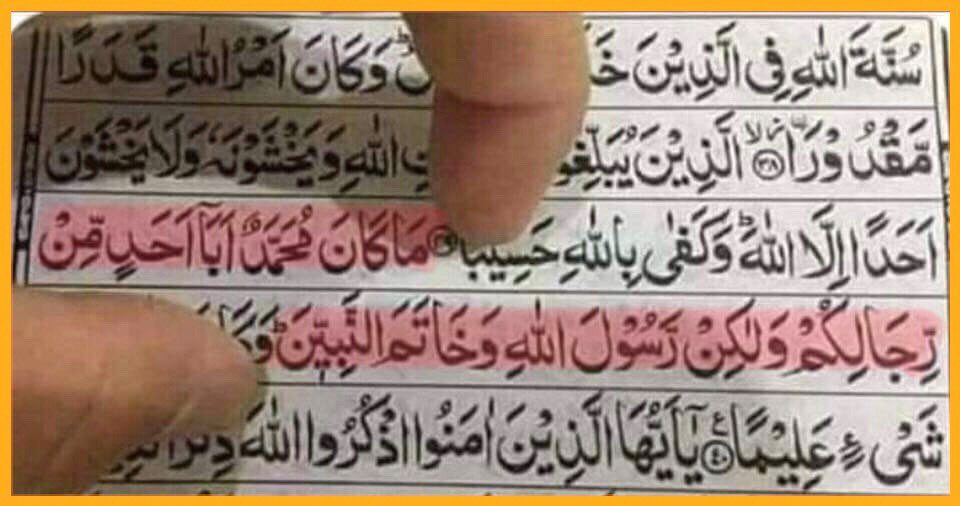 سُنَّةَ اللّٰهِ فِی الَّذِیْنَ وَكَانَ اَمْرُ اللّٰهِ قَدَرًا
مَّقْدُوْرَا ۙ﴿۳۸﴾ الَّذِیْنَ اللّٰهِ وَیَخْشَوْنَهٗ وَلَا یَخْشَوْنَ
اَحَدًا اِلَّا اللّٰهَ ؕ وَكَفٰی بِاللّٰهِ حَسِیْبًا مَا كَانَ مُحَمَّدٌ اَبَاۤ اَحَدٍ مِّنْ
رِّجَالِكُمْ وَلٰكِنْ رَّسُوْلَ اللّٰهِ وَخَاتَمَ النَّبِیّٖنَ ؕ
شَیْءٍ عَلِیْمًا ﴿۴۰﴾ یٰۤاَیُّهَا الَّذِیْنَ اٰمَنُوا اذْكُرُوا اللّٰهَ